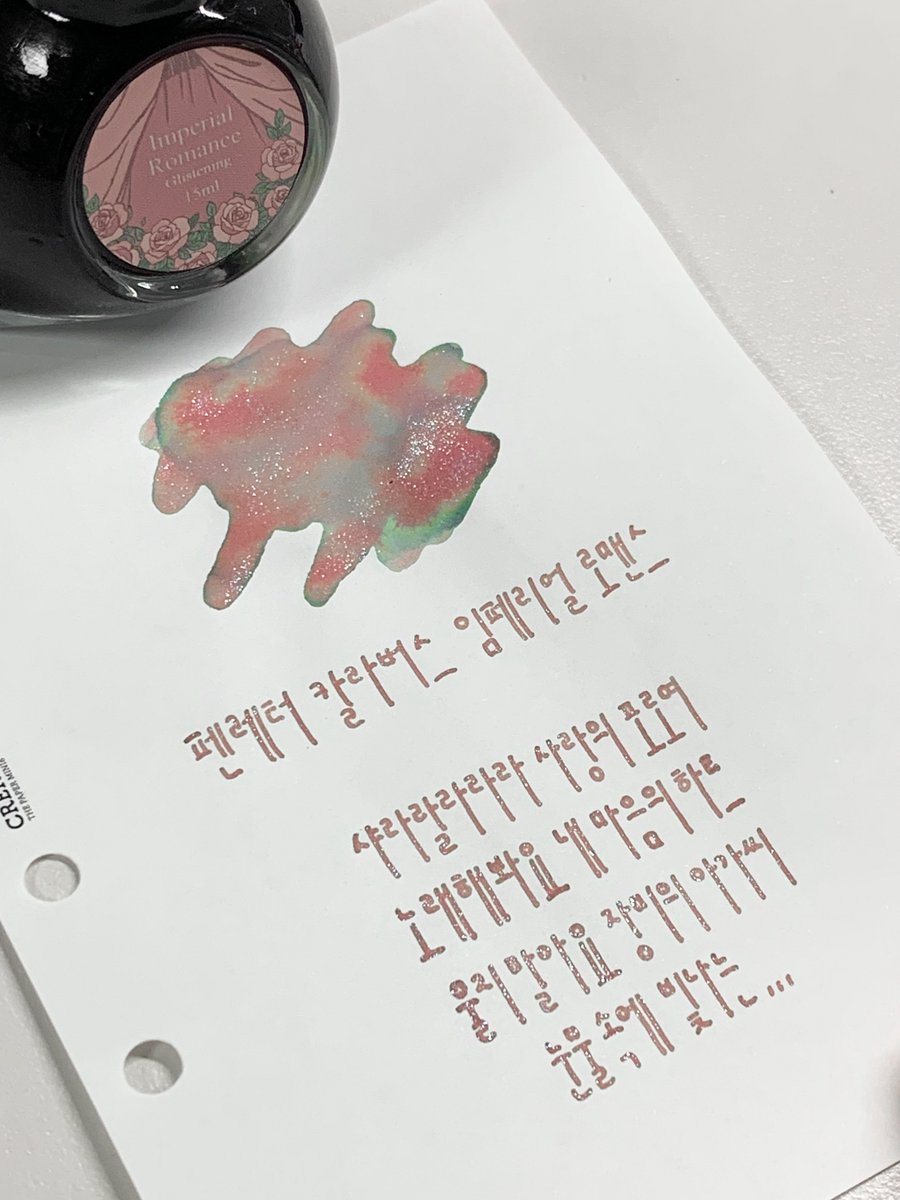 Imperial
Romance
Glistening
15ml
펜레터 칼라버스 임페리얼 로맨스
샤라랄라라라 사랑의 포로여
노래해봐요 내 마음의
울지말아요 장미의 아가씨
눈물속에 빛나는...
THE PAPER